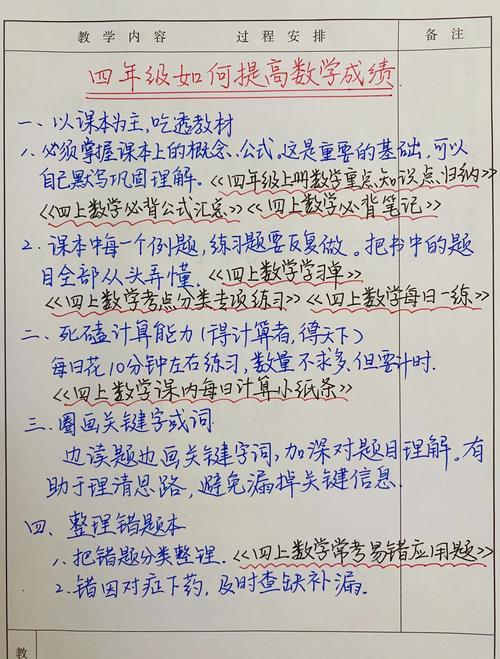 教学内容 过程安排 备注
四年级如何提高数学成绩
一、以课本为主,吃透教材
1、必须掌握课本上的概念、公式。这是重要的基础,可以
自己默写巩固理解.《四年级上册数学重点知识点归纳》
《四上数学必背公式汇总》《四上数学必背笔记》
2.课本中每一个例题,练习题要反复做。把书中的题
目全部从头弄懂.《四上数学学习单》
《四上数学考点分类专项练习》《四上数学每日一练》
二、死磕计算能力(得计算者,得天下)
每日花10分钟左右练习,数量不求多.但要计时.
《四上数学课内每日计算小纸条》
三.圈画关键字或词
边读题边画关键字词,加深对题目理解.有
助于理清思路,避免漏掉关键信息.
四.整理错题本
1、把错题分类整理.《四上数学常考易错应用题》
2.错因对症下药,及时查缺补漏.
教